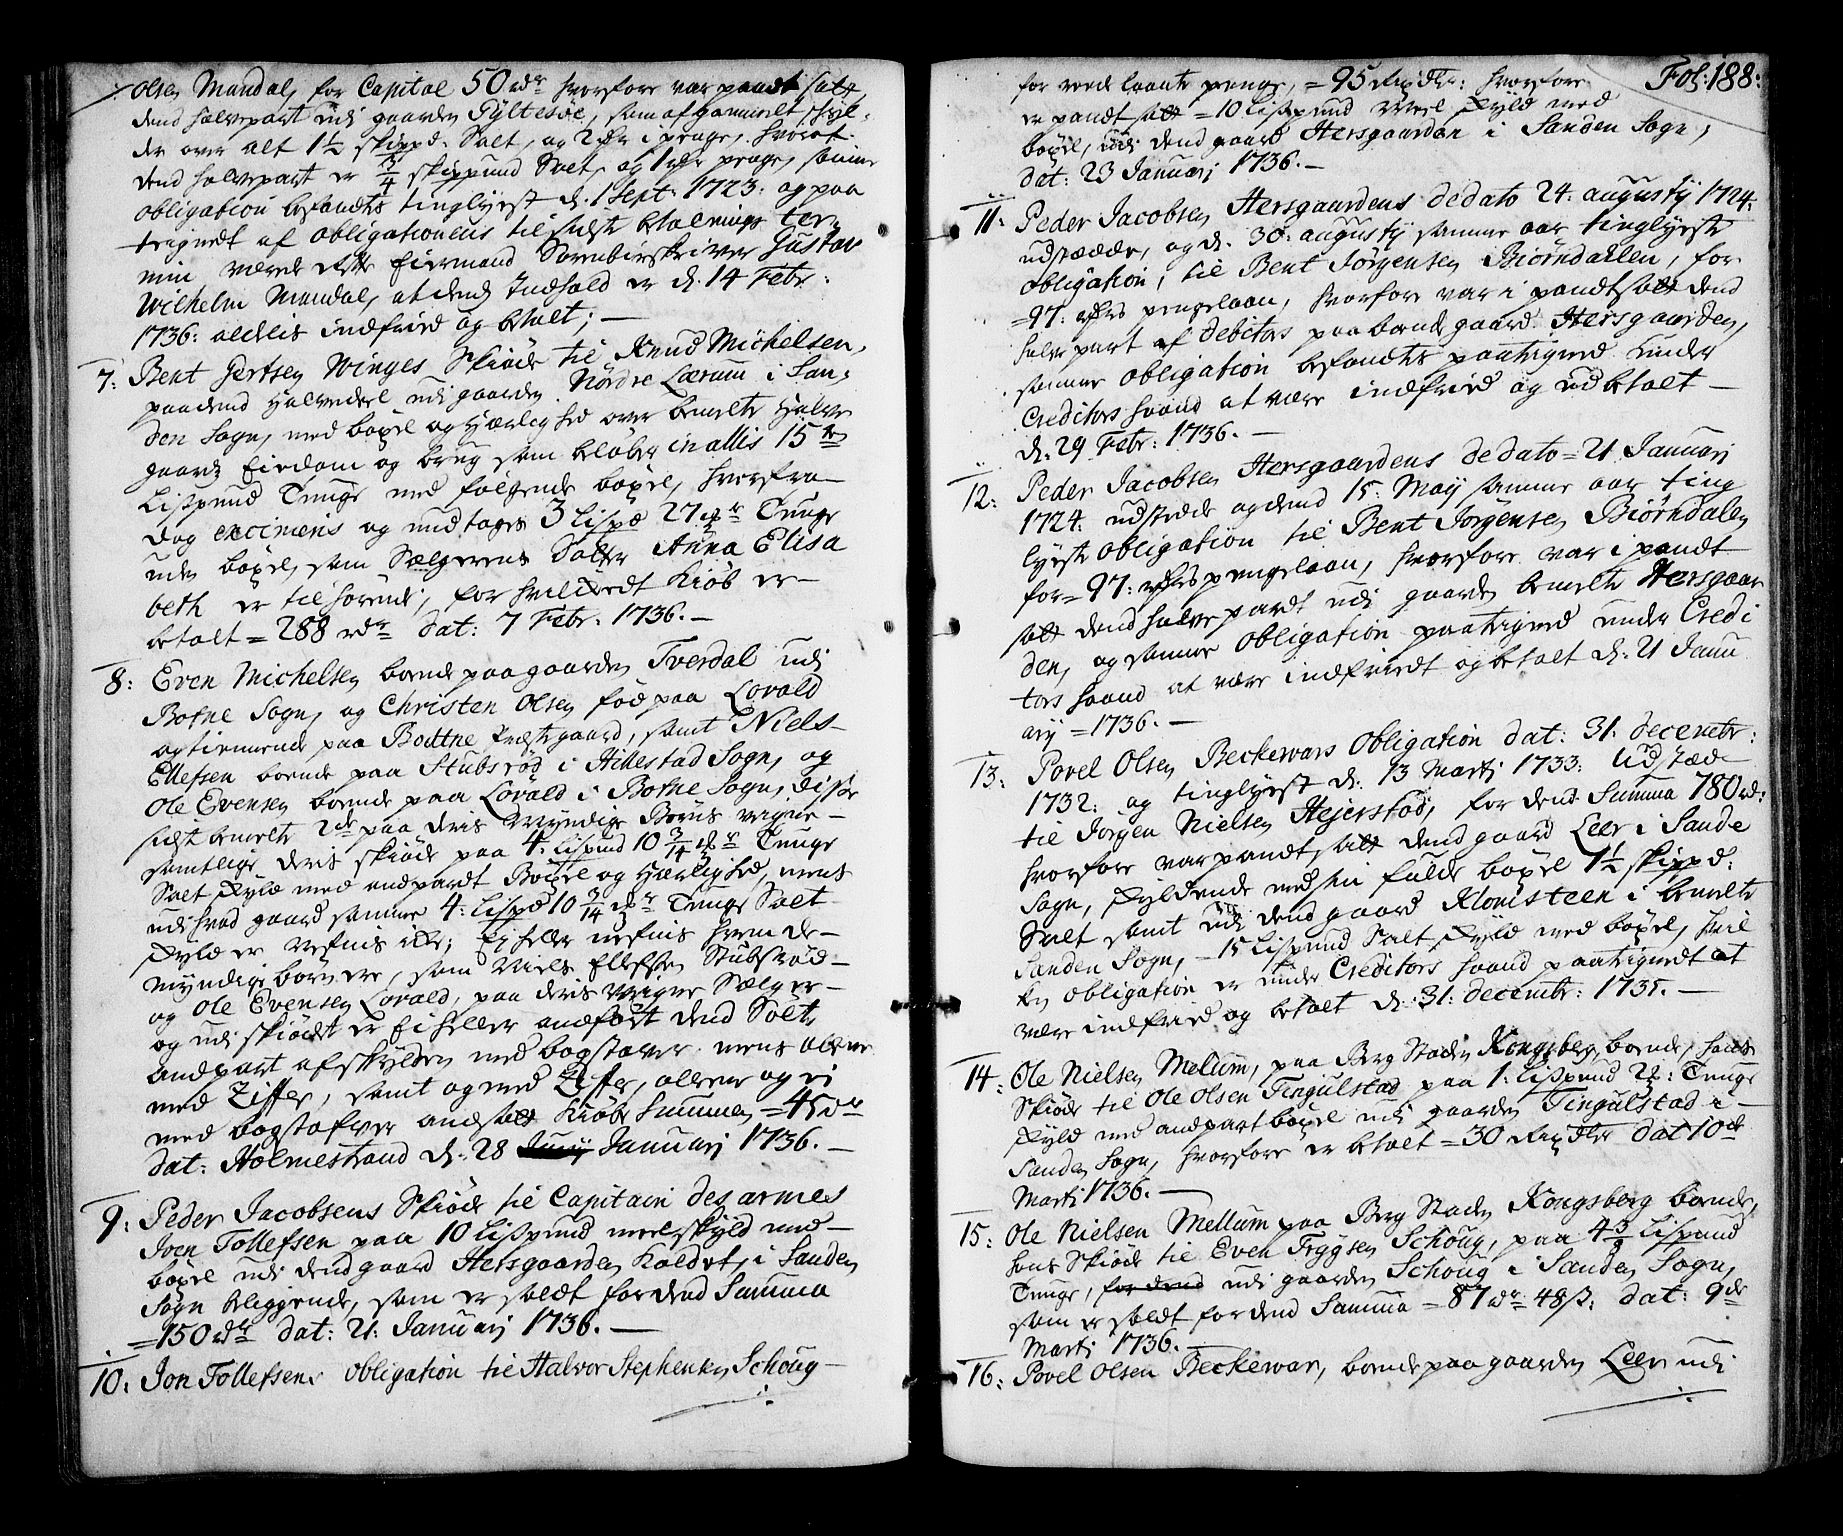 Olsen Mandal, for Capital 50 rdr hvorfore var pandt satt,
dend halvepart udj gaarden Gyltesøe, som af gammelt skyl-
der over alt 1½ skippd: Salt, og 2 rdr i penge, hvoraf
dend halvepart er ¾ skippund Salt, og 1 rdr penge, samme
obligation befandtes tinglyst d. 1 Sept: 1723: og paa
tegnedt af obligationens til sidste betalnings ter-
min værende Eiermand Sorenschriver Gustav
Wilhelm Mandal, at dend Indhold er d: 14 Febr:
1736: aldelis indfried og betalt; —
7: Bent Gertsen Winges Skiøde til Knud Michelsen,
paa dend Halvedeel udj gaarden Nordre Lærum i San-
den Sogn, med bøxel og Herlighed over bemelte Halve
gaards Eiendom og brug som beløber in allis 15
Lispund Tunge med følgende bøxel, hvorfra
dog eximeris og undtages 3 Lispd 27 Tunge
uden bøxel, som Sælgerens Datter Anna Elisa
beth er tilhørende, for hvilcket Kiøb er
betalt = 288 rdr dat: 7 Febr. 1736. —
8: Even Michelsen boende paa gaarden Tverdal udj
Botne Sogn, og Christen Olsen fød paa Lovald
og tienende paa Bottne Præstegaard, samt Niels
Ellefsen boende paa Stubsrød i Hillestad Sogn, og
Ole Evensen boende paa Lovald i Botne Sogn, disse
sidst bemelte 2de paa deris Myndige Børns vegne
samtlige deris skiøde paa 4: Lispund 10 3/14 Tunge
Salt skyld med andpardt Bøxel og Herlighed, mens
udj hvad gaard samme 4: Lispd 10 3/14 Tunge Salt
skyld er nefnis icke; Ej heller nefnis hvem de
myndige born ere, som Niels Ellefsen Stubsrød
og Ole Evensen Lovald, paa deris vegne Sælger
og udj skiødet er Ei heller anført dend Salt
andpart af skylden med bogstaver mens allene
med Ziffer, samt og med Ziffer, allene og ei
med bogstafver andsatt Kiøbe Summen = 45 rdr
dat: Holmestrand d. 28 Januarj 1736. —
9: Peder Jacobsens Skiøde til Capitain des armes
Joen Tollefsen paa 10 Lispund meel skyld med
bøxel udj dend gaard Hersgaarden kaldet, i Sanden
Sogn beliggende, som er soldt for dend Summa
= 150 rdr dat: 21: Januarj 1736. —
10: Jon Tollefsens Obligation til Halvor Stephensen Schoug
Fol: 188:
for reede laante penge, = 95 rixdlr: hvorfore
er pandt satt = 10 Lispund Meel skyld med
bøxel, udj dend gaard Hersgaarden i Sanden Sogn,
dat: 23 Januarj 1736. —
11: Peder Jacobsen Hersgaardens de dato 24: augusty 1724:
udstædde, og d. 30: augusty samme aar tinglyste
obligation, til Bent Jørgensen Biørndallen, for
= 97: rdrs pengelaan, hvorfore var i pandt satt dend
halve part af debitors paaboende gaard Hersgaarden,
samme obligation befandtes paategned under
Creditors haand at være indfried og udbetalt
d. 29 Febr: 1736. —
12: Peder Jacobsen Hersgaardens de dato = 21 Januarj
1724: udstede og dend 15: Maij samme aar ting
lyste obligation til Bent Jørgensen Biørndalen
for = 97: rdrs pengelaan, hvorfore var i pandt
satt dend halve pardt udj gaarden bemelte Hersgaar
den, og samme obligation paategned under Credi
tors haand at være indfriedt og betalt d: 21 Janu
arij = 1736. —
13: Povel Olsen Beckewars Obligation dat: 31. decembr:
1732: og tinglyst d: 13 Martj 1733: Udstæd
til Jørgen Nielsen Hejerstød, for dend Summa 780 rd:
hvorfore var pandt satt dend gaard Leer i Sande
Sogn, skyldende med sin fulde bøxel 1½ skippd:
Salt samt udj dend gaard Klovisteen i bemelte
Sanden Sogn, = 15 Lispund Salt skyld med bøxel, hvil
ken obligation er under Creditors haand paategnedt at
være indfried og betalt d: 31: decembr: 1735. —
14: Ole Nielsen Mellum, paa Berg Staden Kongsberg boende, hans
Skiøde til Ole Olsen Tingulstad paa 1: Lispund 2: Tunge
skyld med andpart bøxel udj gaarden Tingulstad i
Sanden Sogn, hvorfore er betalt = 30 rixdlr dat 10de
Martj 1736. —
15: Ole Nielsen Mellum paa Berg Staden Kongsberg boende,
hans Skiøde til Even Trygsen Schoug, paa 4 3/9 Lispund
Tunge, for dend udj gaarden Schoug i Sanden Sogn,
som er soldt for dend Summa = 87 rdr 48 s: dat: 9de
Martj 1736. —
16: Povel Olsen Beckewar, boende paa gaarden Leer udj